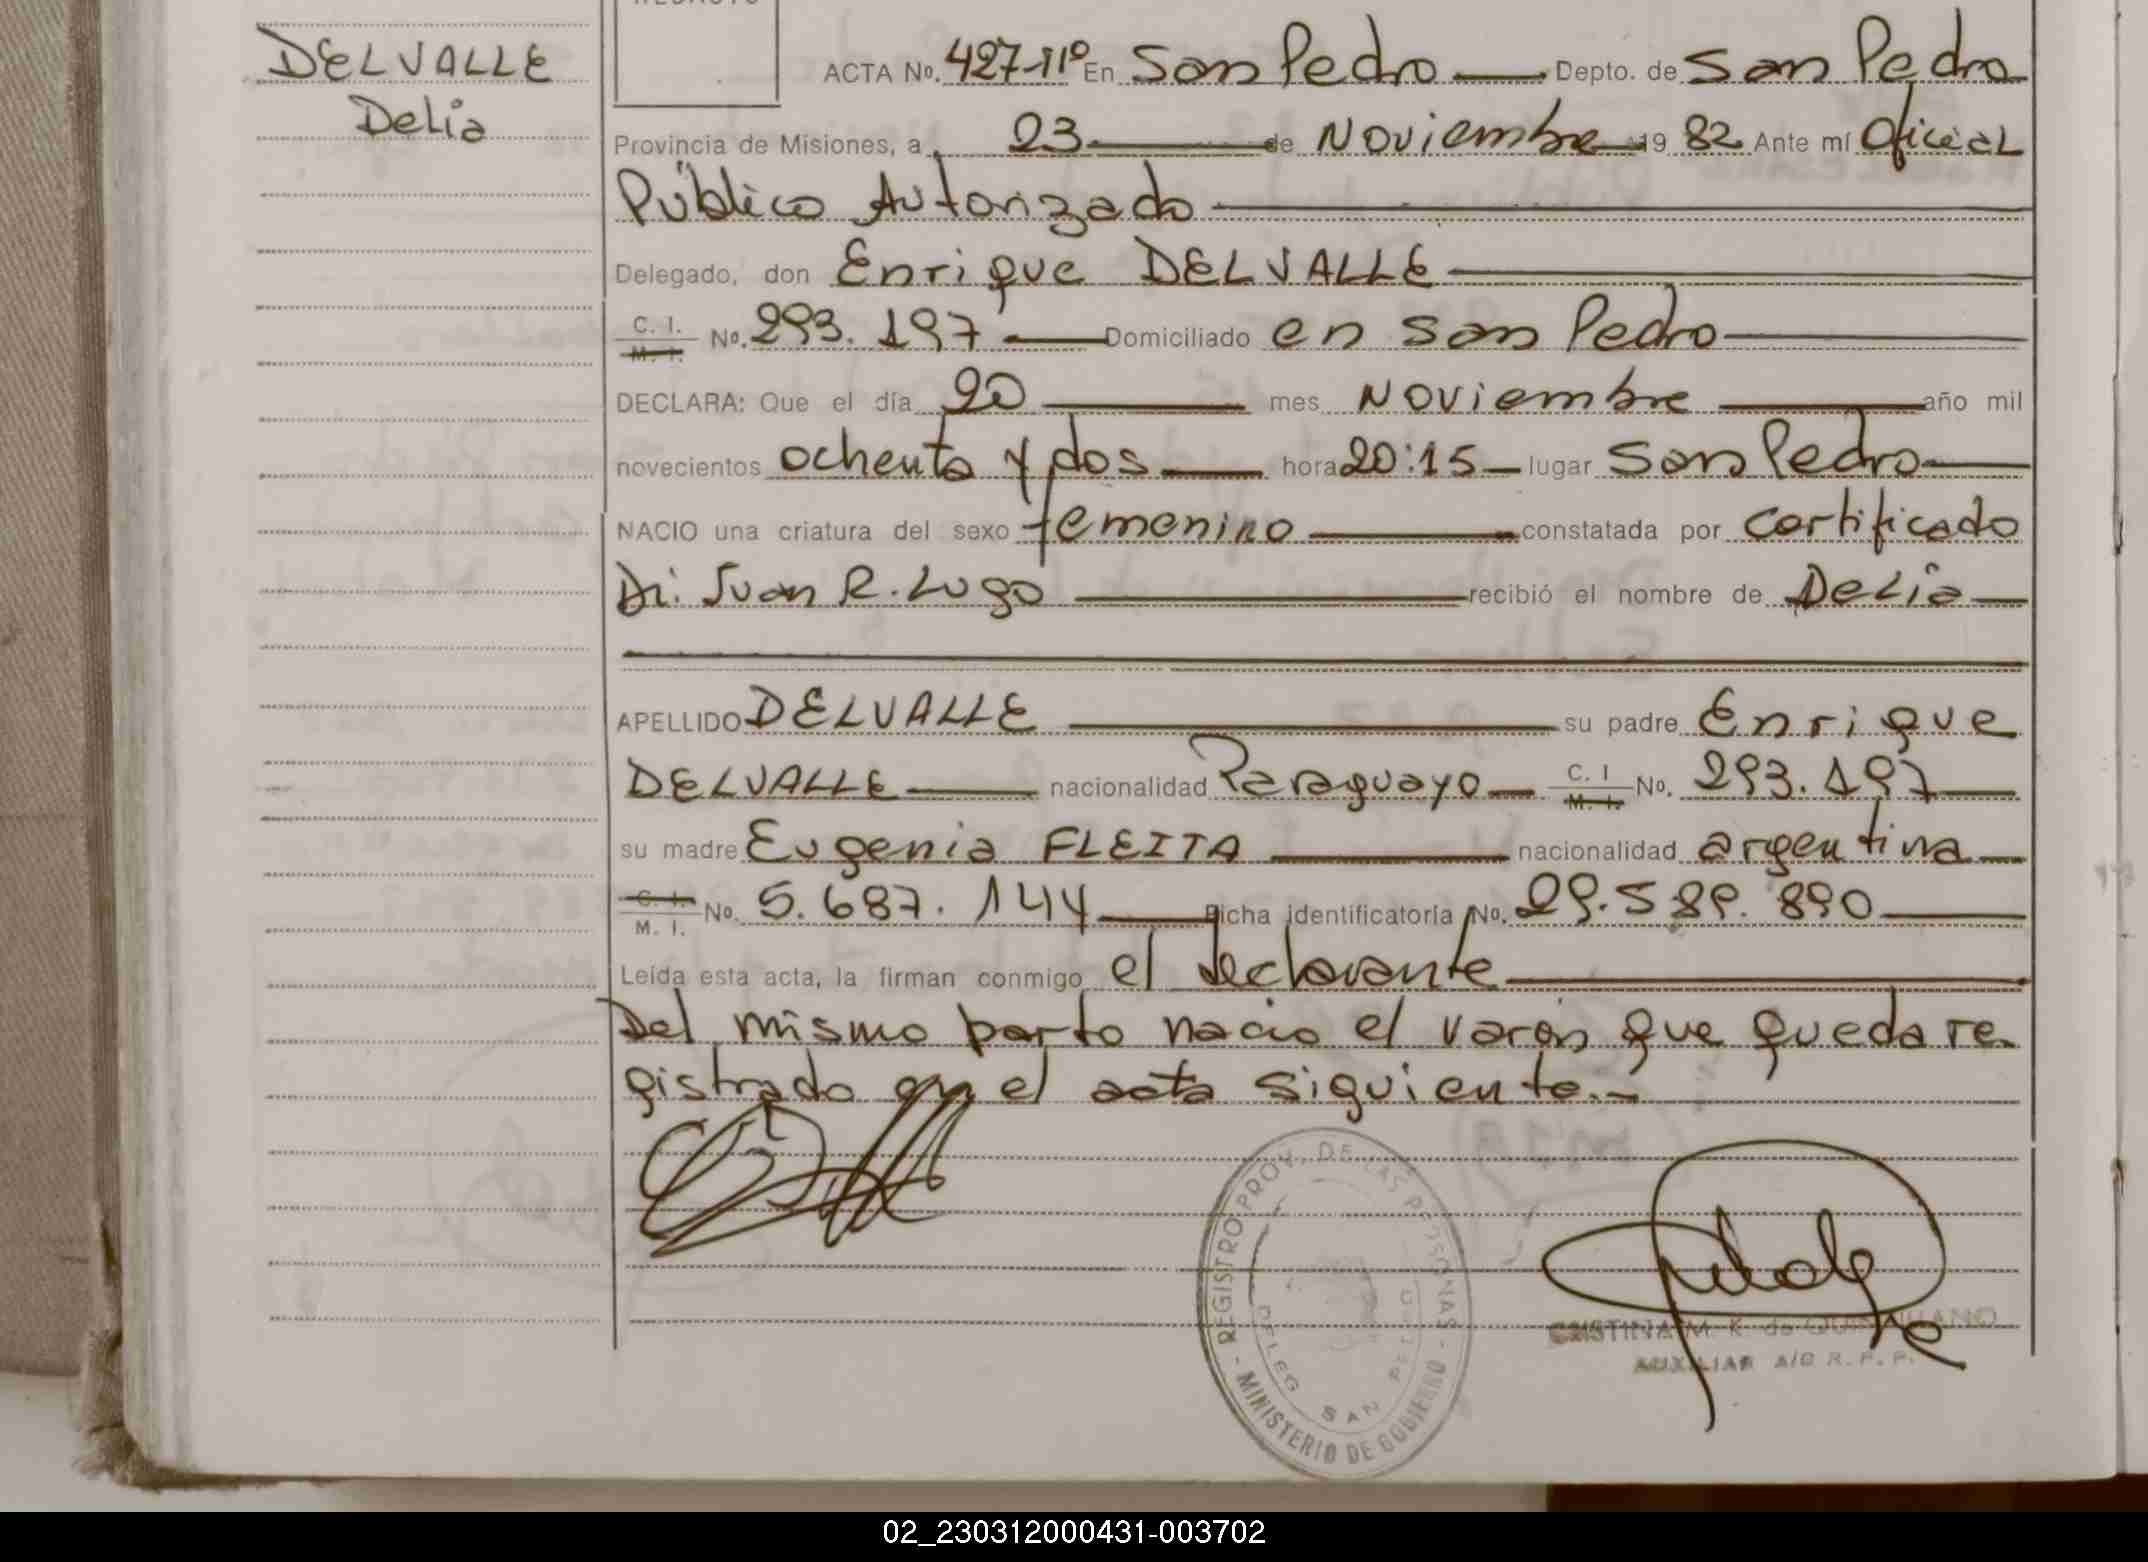 DELVALLE
Delia
ACTA No. 427-IIº En San Pedro Depto. de San Pedro
Provincia de Misiones, a 23 de Noviembre 19 82 Ante mí Oficial
Público Autorizado
Delegado, don Enrique DELVALLE
C. I.
M. I.
No. 293.197 Domiciliado en San Pedro
DECLARA: Que el día 20 mes Noviembre año mil
novecientos ochenta y dos hora 20:15 lugar San Pedro
NACIO una criatura del sexo femenino constatada por certificado
Dr. Juan R. Lugo recibió el nombre de Delia
APELLIDO DELVALLE su padre Enrique
DELVALLE nacionalidad Paraguayo C. I M. I. No. 293.197
su madre Eugenia FLEITA nacionalidad argentina
C. I.
M. I.
No. 5.687.144 Ficha identificatoria No. 29.589.890
Leída esta acta, la firman conmigo el declarante
Del mismo parto nacio el varón que queda re
gistrado en el acta siguiente.-
REGISTRO PROV. DE LAS PERSONAS - MINISTERIO DE GOBIERNO -
DELEG SAN PEDRO
CRISTINA M. K. de
AUXILIAR A/C R. P. P.
02_230312000431-003702